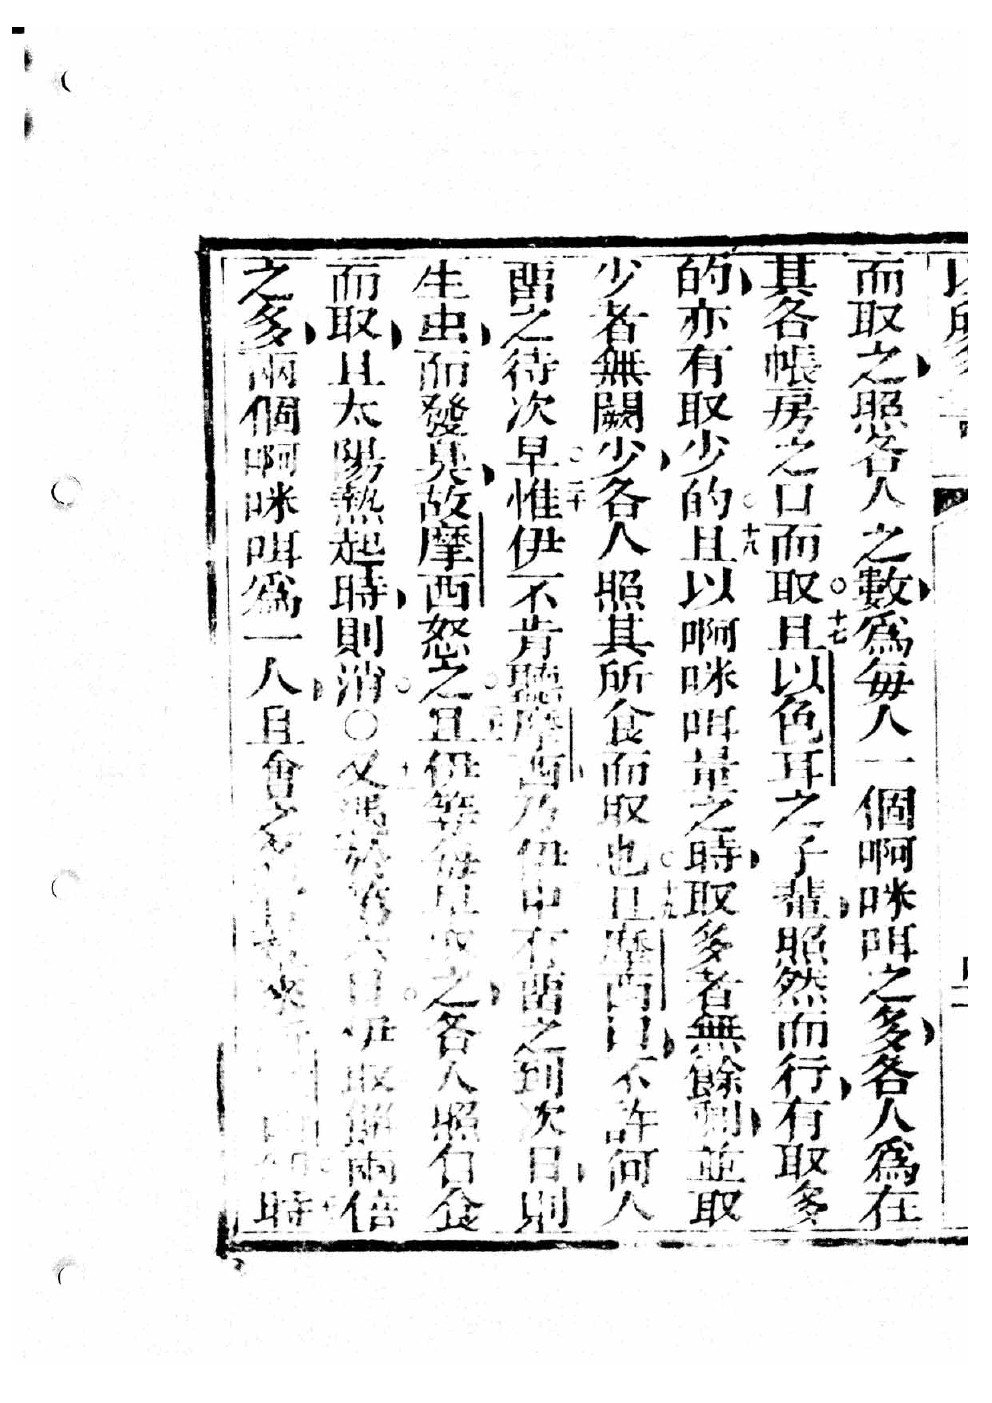 而取之照各人之數為每人一個啊咪咡之多各人為在
其各帳房之口而取○十七且以色耳之子輩照然而行有取多
的亦有取少的○十八且以啊咪咡量之時取多者無餘剩並取
少者無闕少各人照其所食而取也○十九且摩西曰不許何人
畱之待次早○二十惟伊不肯聽摩西乃伊中有畱之到次日則
生虫而發臭故摩西怒之○且伊等每早取之各人照勻食
而取且太陽熱起時則消○又遇於第六日伊取餅兩倍
之多兩個啊咪咡為一人且會之來時